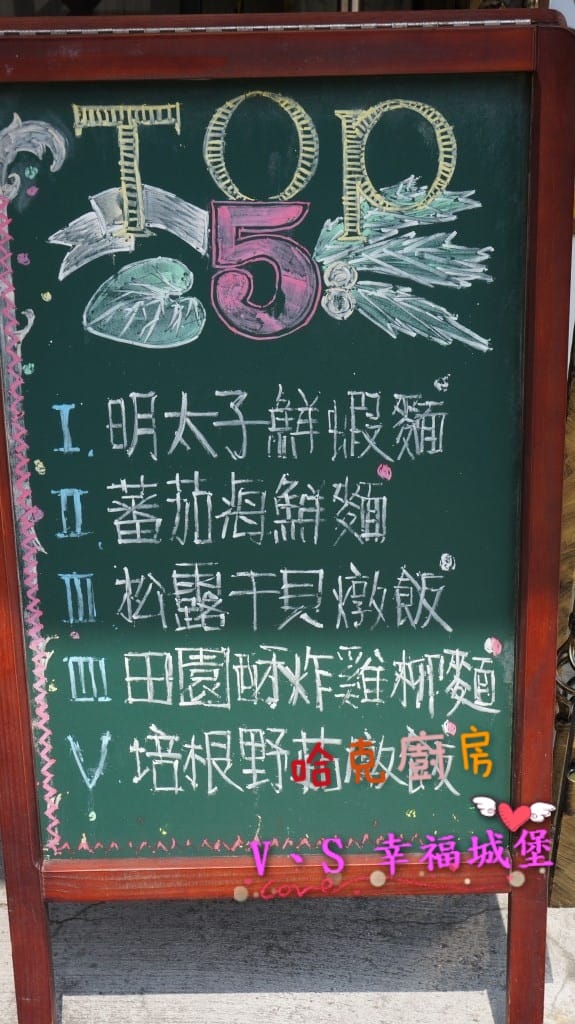 TOP
5
I. 明太子鮮蝦麵
II. 蕃茄海鮮麵
III 松露干貝燉飯
IIII 田園酥炸雞柳麵
V 培根野菇燉飯
哈克廚房
V、S 幸福城堡
love